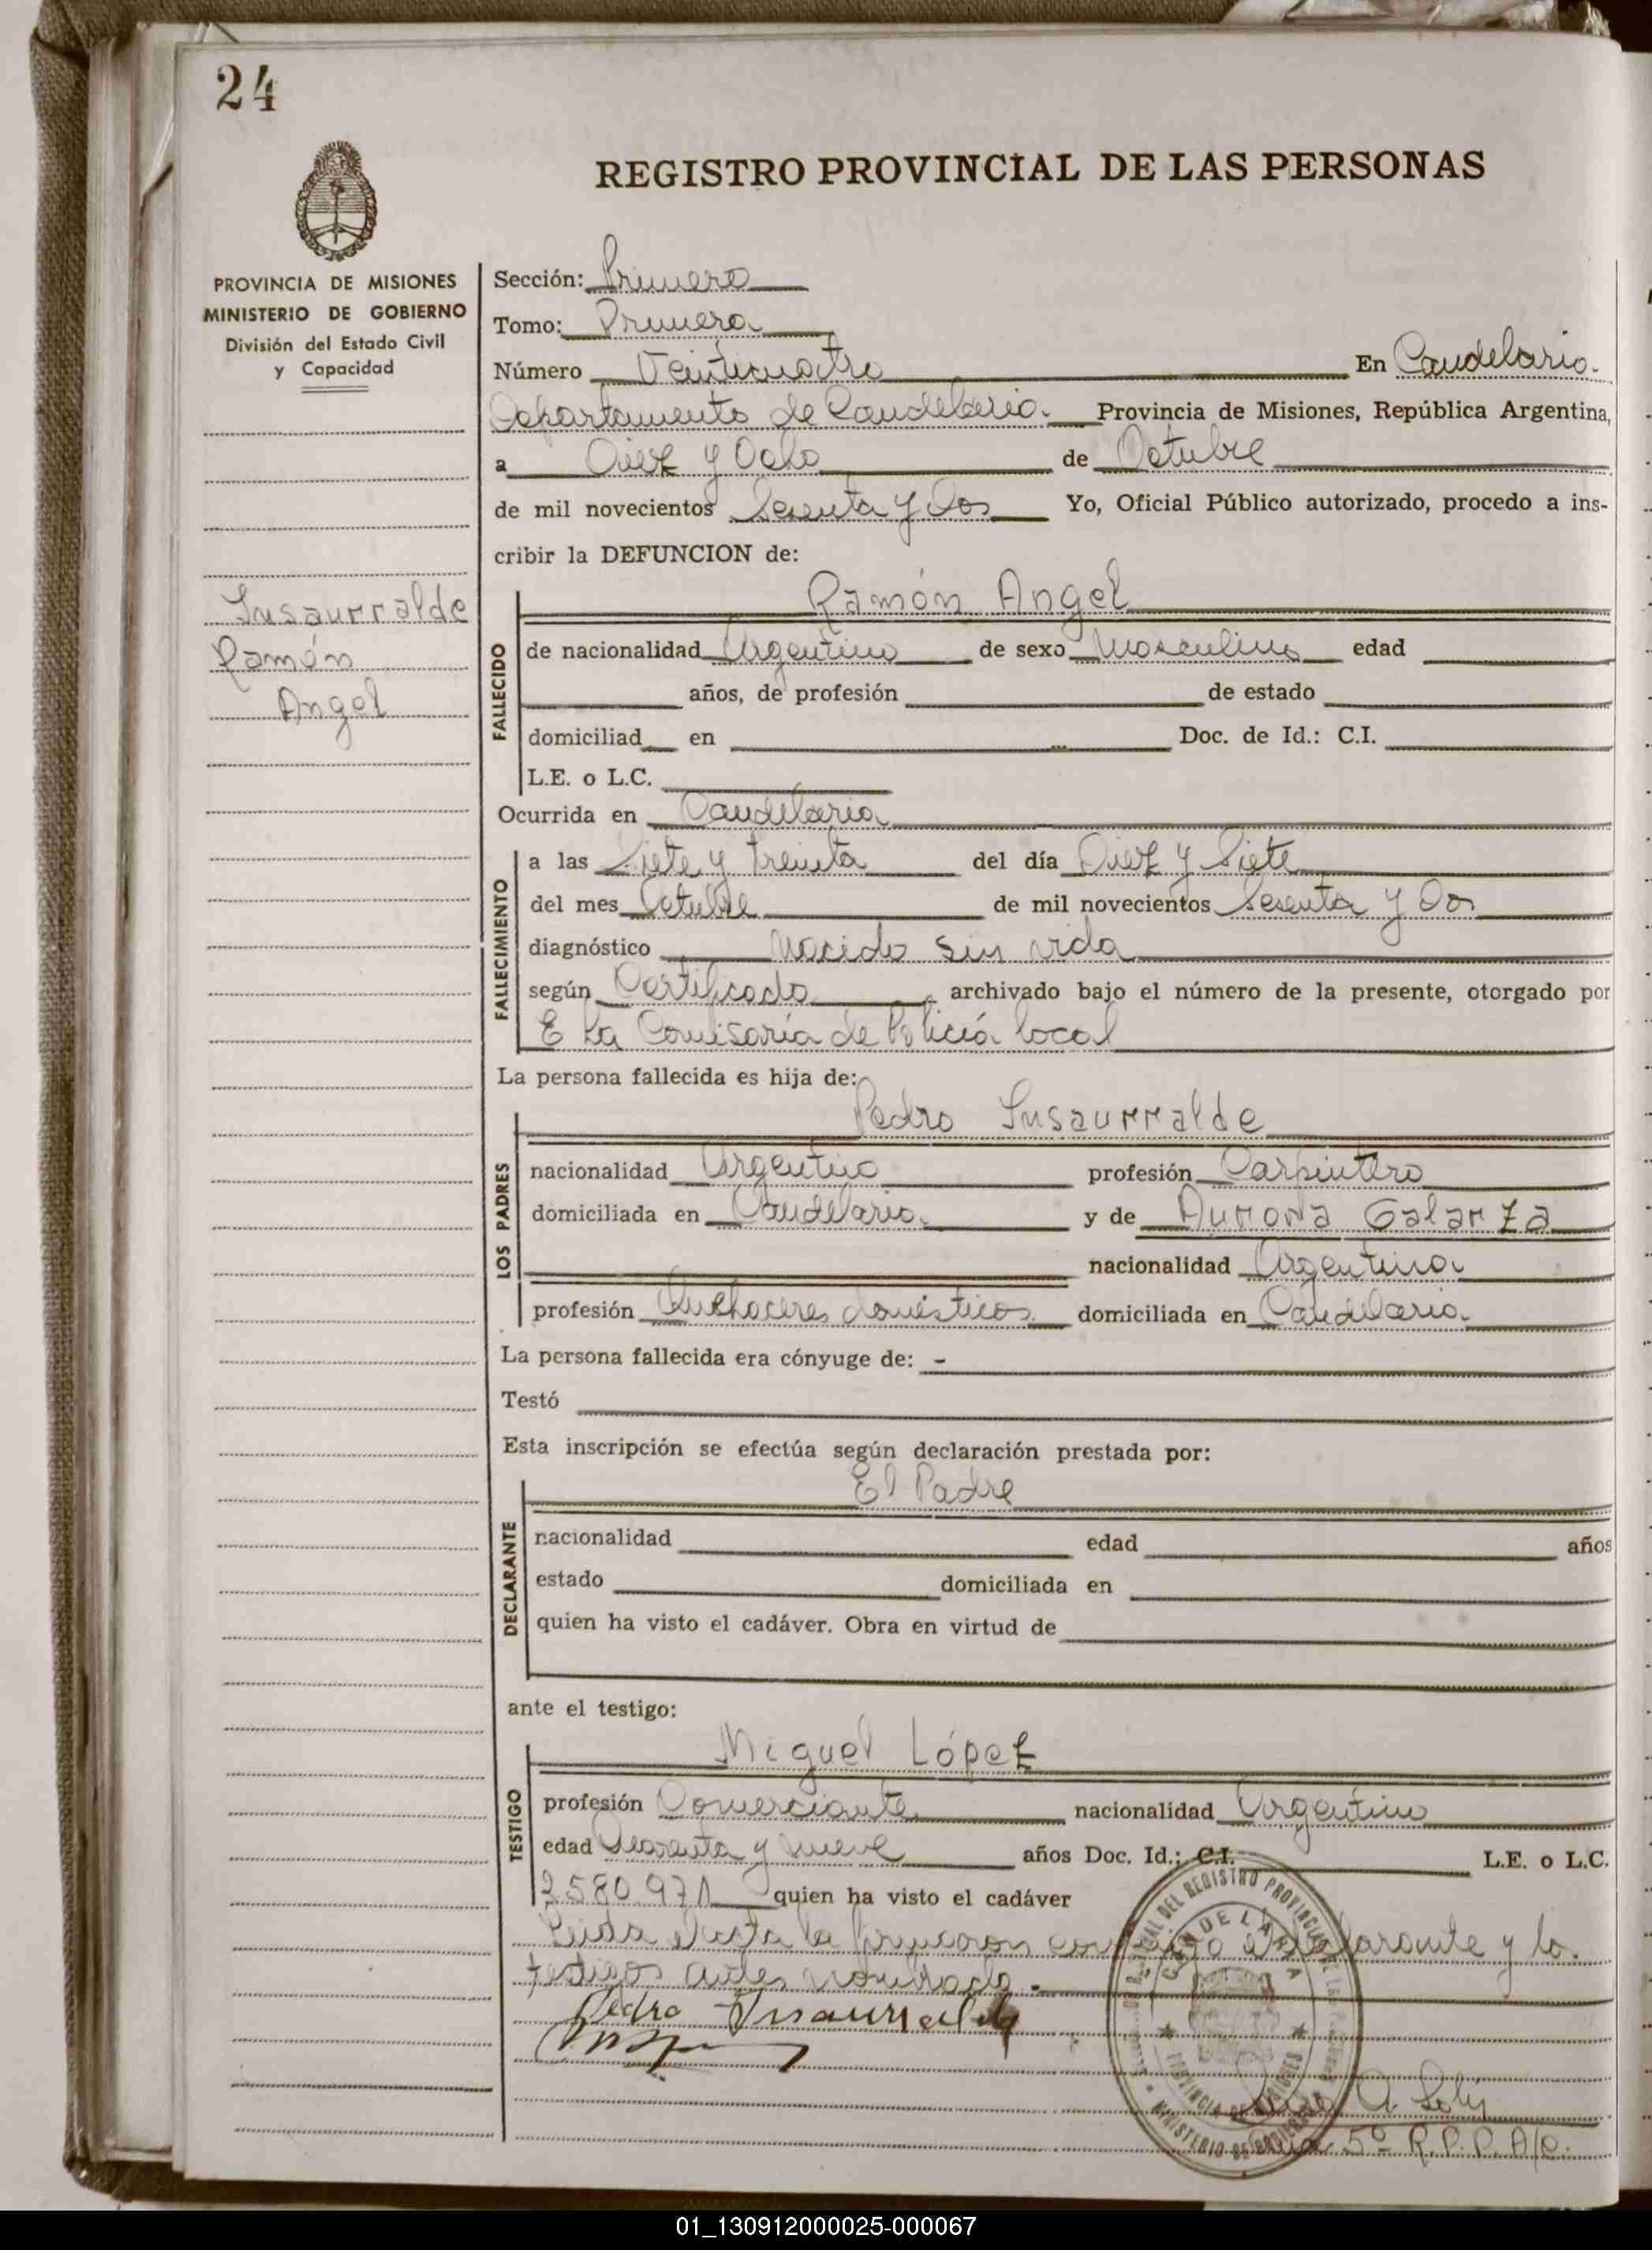 24
REGISTRO PROVINCIAL DE LAS PERSONAS
PROVINCIA DE MISIONES
MINISTERIO DE GOBIERNO
División del Estado Civil
y Capacidad
Insaurralde
Ramón
Angel
Sección: Primero
Tomo: Primera
Número Veinticuatro En Candelaria.
Departamento de Candelaria. Provincia de Misiones, República Argentina,
a Diez y Ocho de Octubre
de mil novecientos Sesenta y Dos Yo, Oficial Público autorizado, procedo a ins-
cribir la DEFUNCION de:
FALLECIDO
Ramón Angel
de nacionalidad Argentino de sexo Masculino edad
años, de profesión de estado
domiciliad en Doc. de Id.: C.I.
L.E. o L.C.
Ocurrida en Candelaria
FALLECIMIENTO
a las Siete y treinta del día Diez y Siete
del mes Octubre de mil novecientos Sesenta y Dos
diagnóstico Nacido sin vida
según Certificado archivado bajo el número de la presente, otorgado por
E La Comisaría de Policía local
La persona fallecida es hija de:
LOS PADRES
Pedro Insaurralde
nacionalidad Argentino profesión Carpintero
domiciliada en Candelaria. y de Aurora Galarza
nacionalidad Argentina
profesión Quehaceres domésticos domiciliada en Candelaria
La persona fallecida era cónyuge de: -
Testó
Esta inscripción se efectúa según declaración prestada por:
DECLARANTE
El Padre
nacionalidad edad años
estado domiciliada en
quien ha visto el cadáver. Obra en virtud de
ante el testigo:
TESTIGO
Miguel López
profesión Comerciante nacionalidad Argentino
edad y nueve años Doc. Id.: C.I. L.E. o L.C.
2580.971 quien ha visto el cadáver
Leida el acta la firmaron el declarante y lo.
testigos antes nombrado.-
Pedro Insaurralde
5º R.P.P. A/C.
DEL REGISTRO PROVINCIAL DE LAS PERSONAS
CANDELARIA
PROVINCIA DE MISIONES
MINISTERIO DE GOBIERNO
01_130912000025-000067